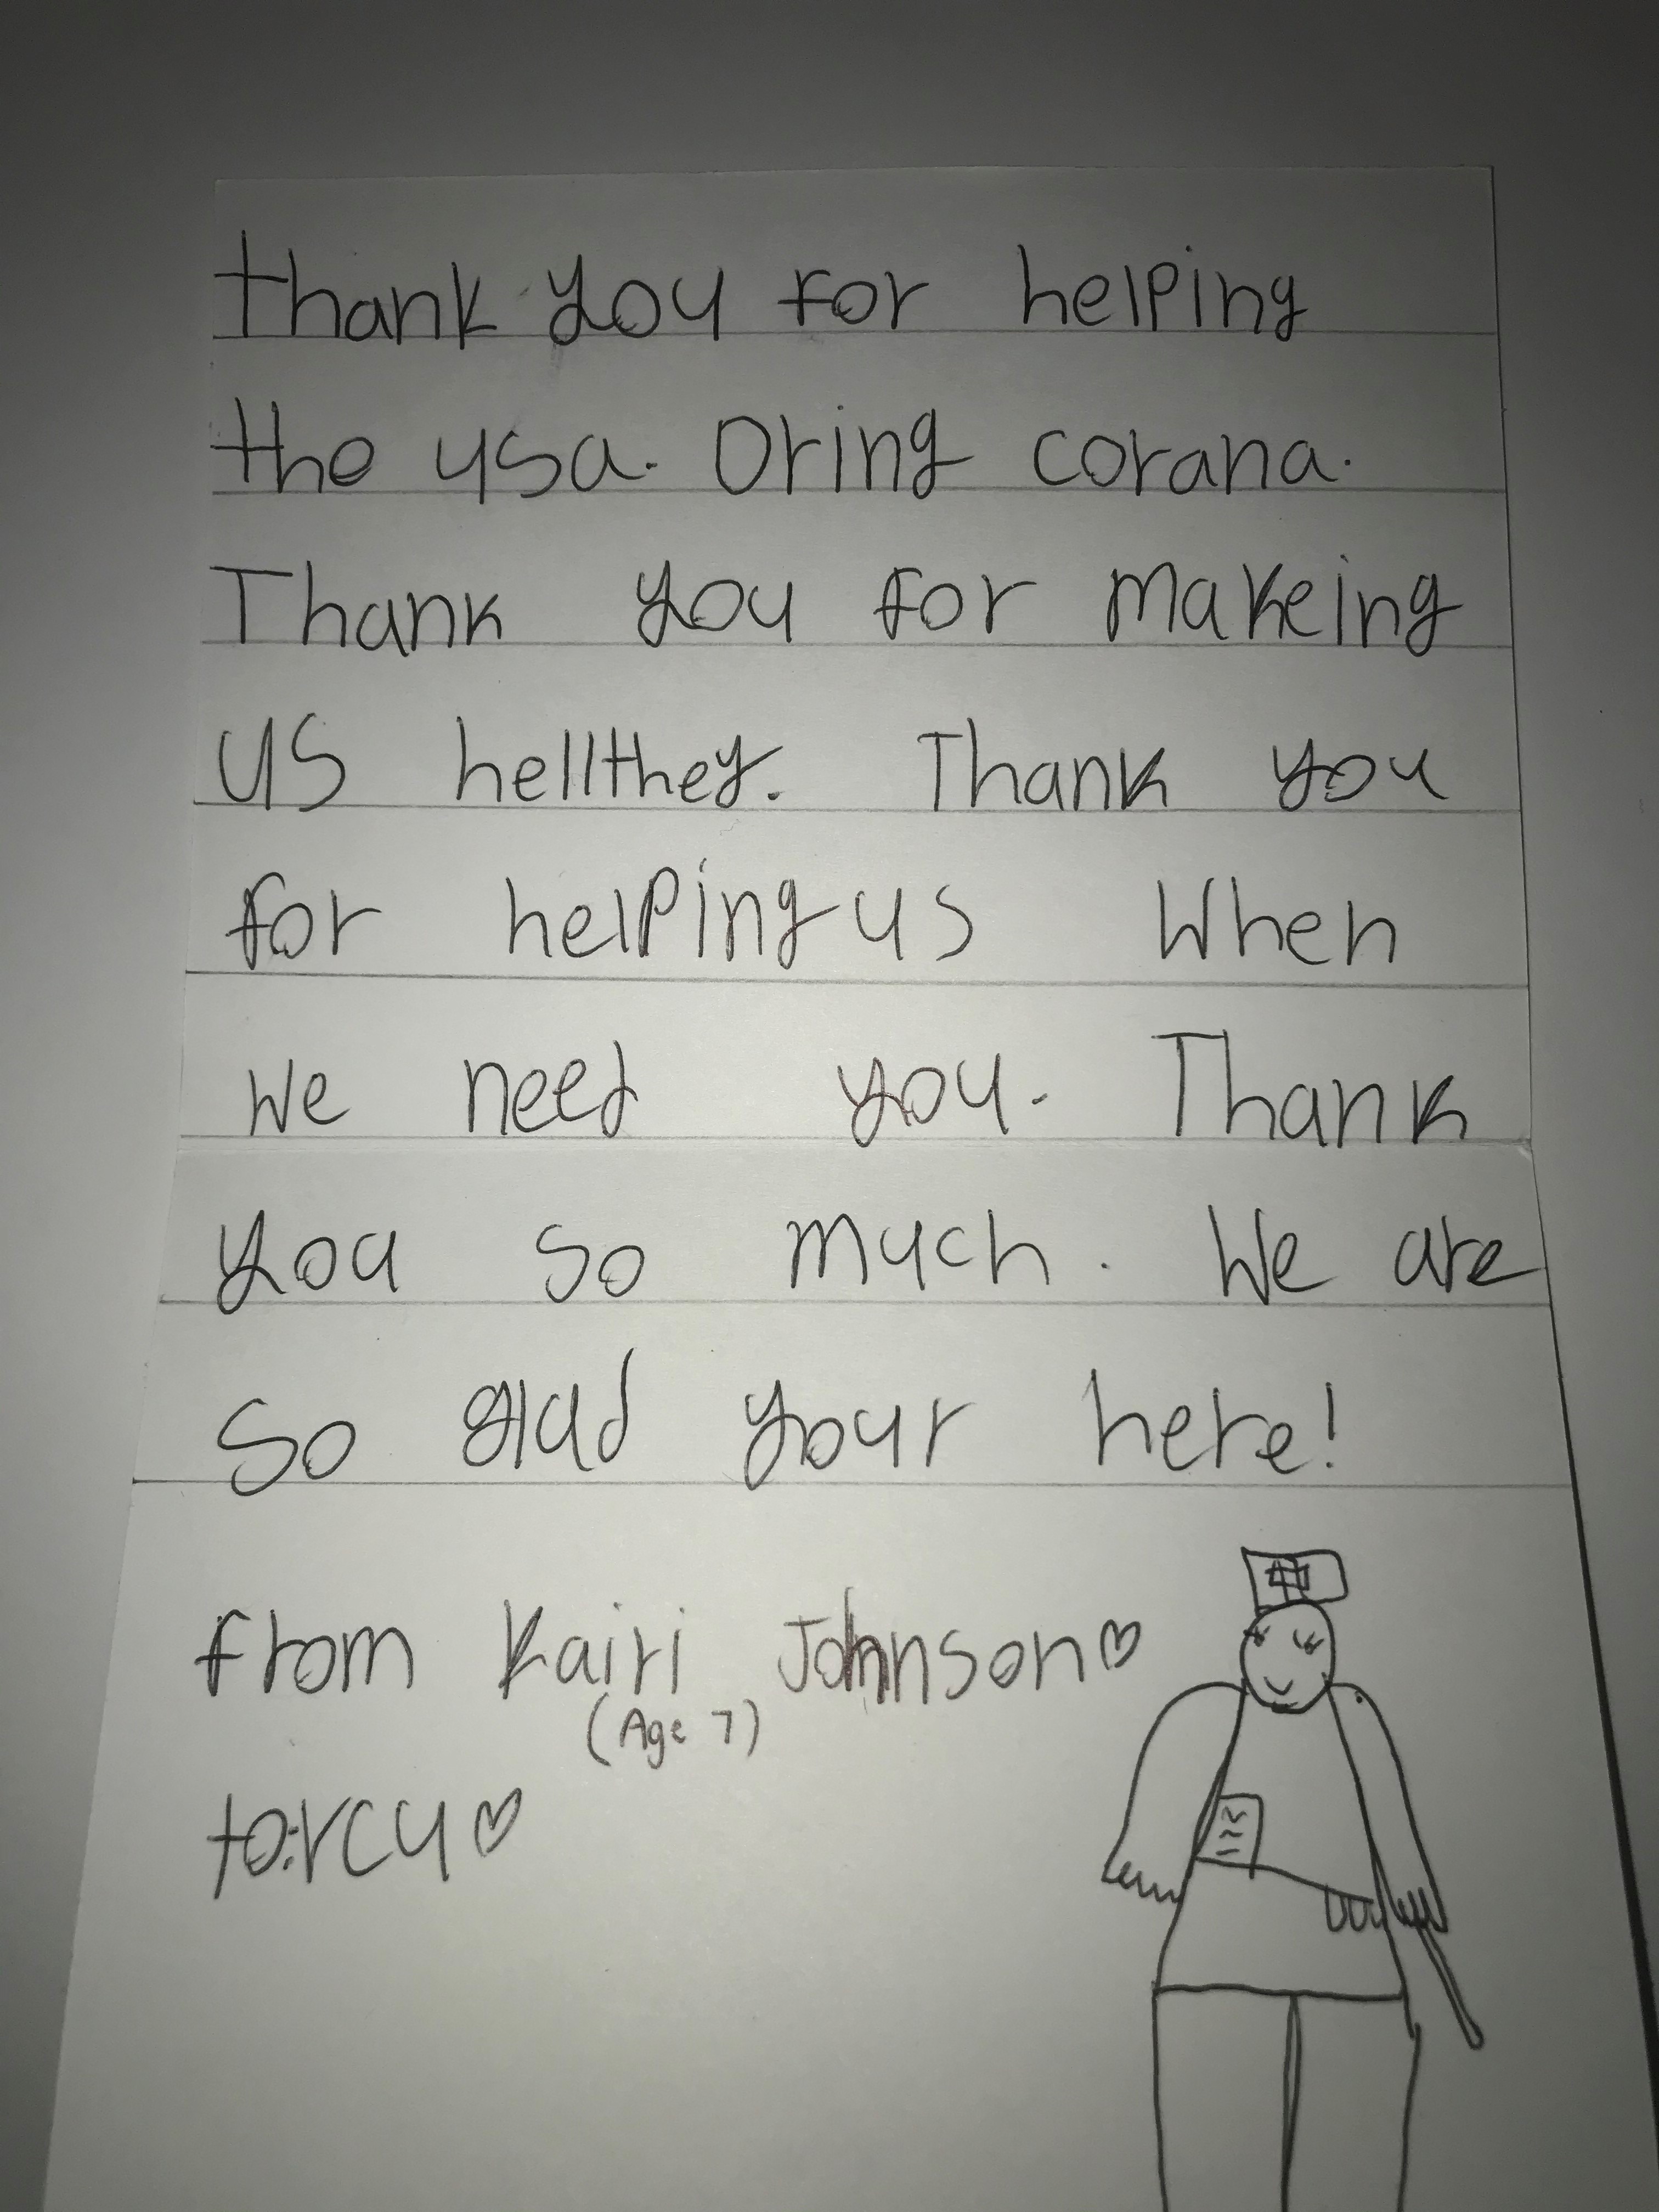 thank you for helping
the usa. Dring corana.
Thank you for makeing
us hellthey. Thank you
for helping us When
we need you. Thank
you so much. We are
so glad your here!
from Kairi Johnson♡
(Age 7)
to:rcu♡